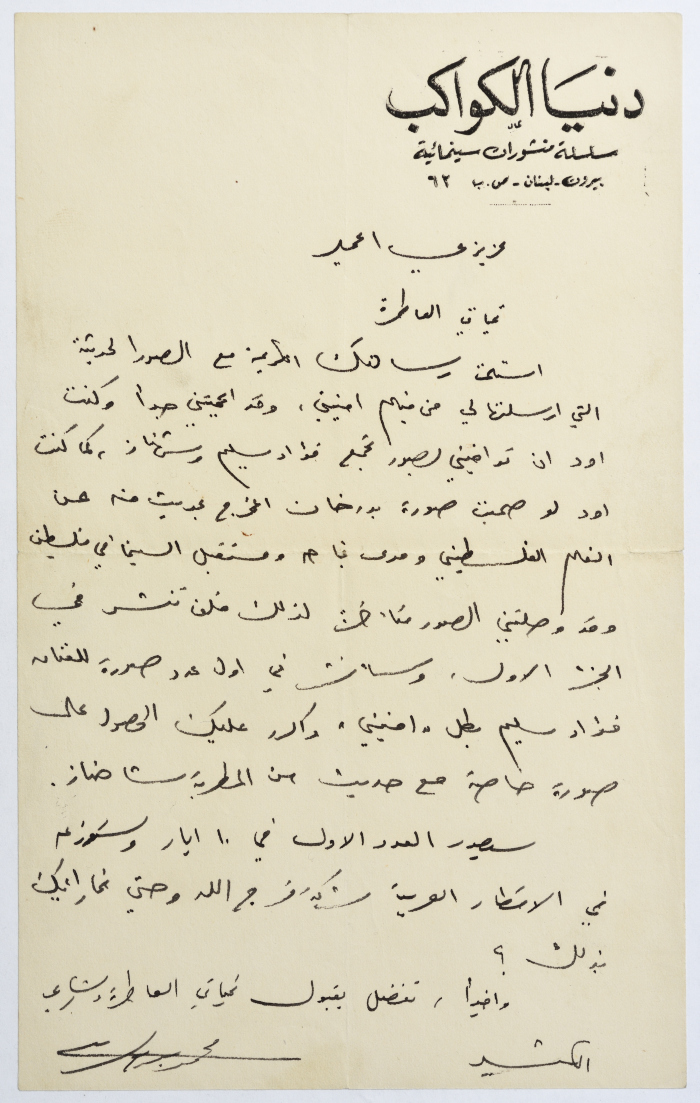 دنيا الكواكب
سلسلة منشورات سينمائية
بيروت - لبنان - ص. ب ٦٢
عزيزي احمد
تحياتي العاطرة
استلمت رسالتك الكريمة مع الصور الحديثة
التي ارسلتها لي من فيلم امنيتي، وقد اعجبتني جداً وكنت
اود ان توافيني بصور تجمع فؤاد سليم وشهناز، كما كنت
اود لو صحبت صورة بدرخان المخرج بحديث منه عن
الفلم الفلسطيني ومدى نجاحه ومستقبل السينما في فلسطين
وقد وصلتني الصور متأخرة لذلك فلن تنشر في
الجزء الاول، وسأنشر في اول عدد صورة للفنان
فؤاد سليم بطل «امنيتي» واكرر عليك الحصول على
صورة خاصة مع حديث من المطربة شاهناز.
سيصدر العدد الاول في ١٠ ايار وستوزعه
في الاقطار العربية شركة فرج الله وحتى
بذلك ؟
واخيراً، تفضل بقبول تحياتي العاطرة